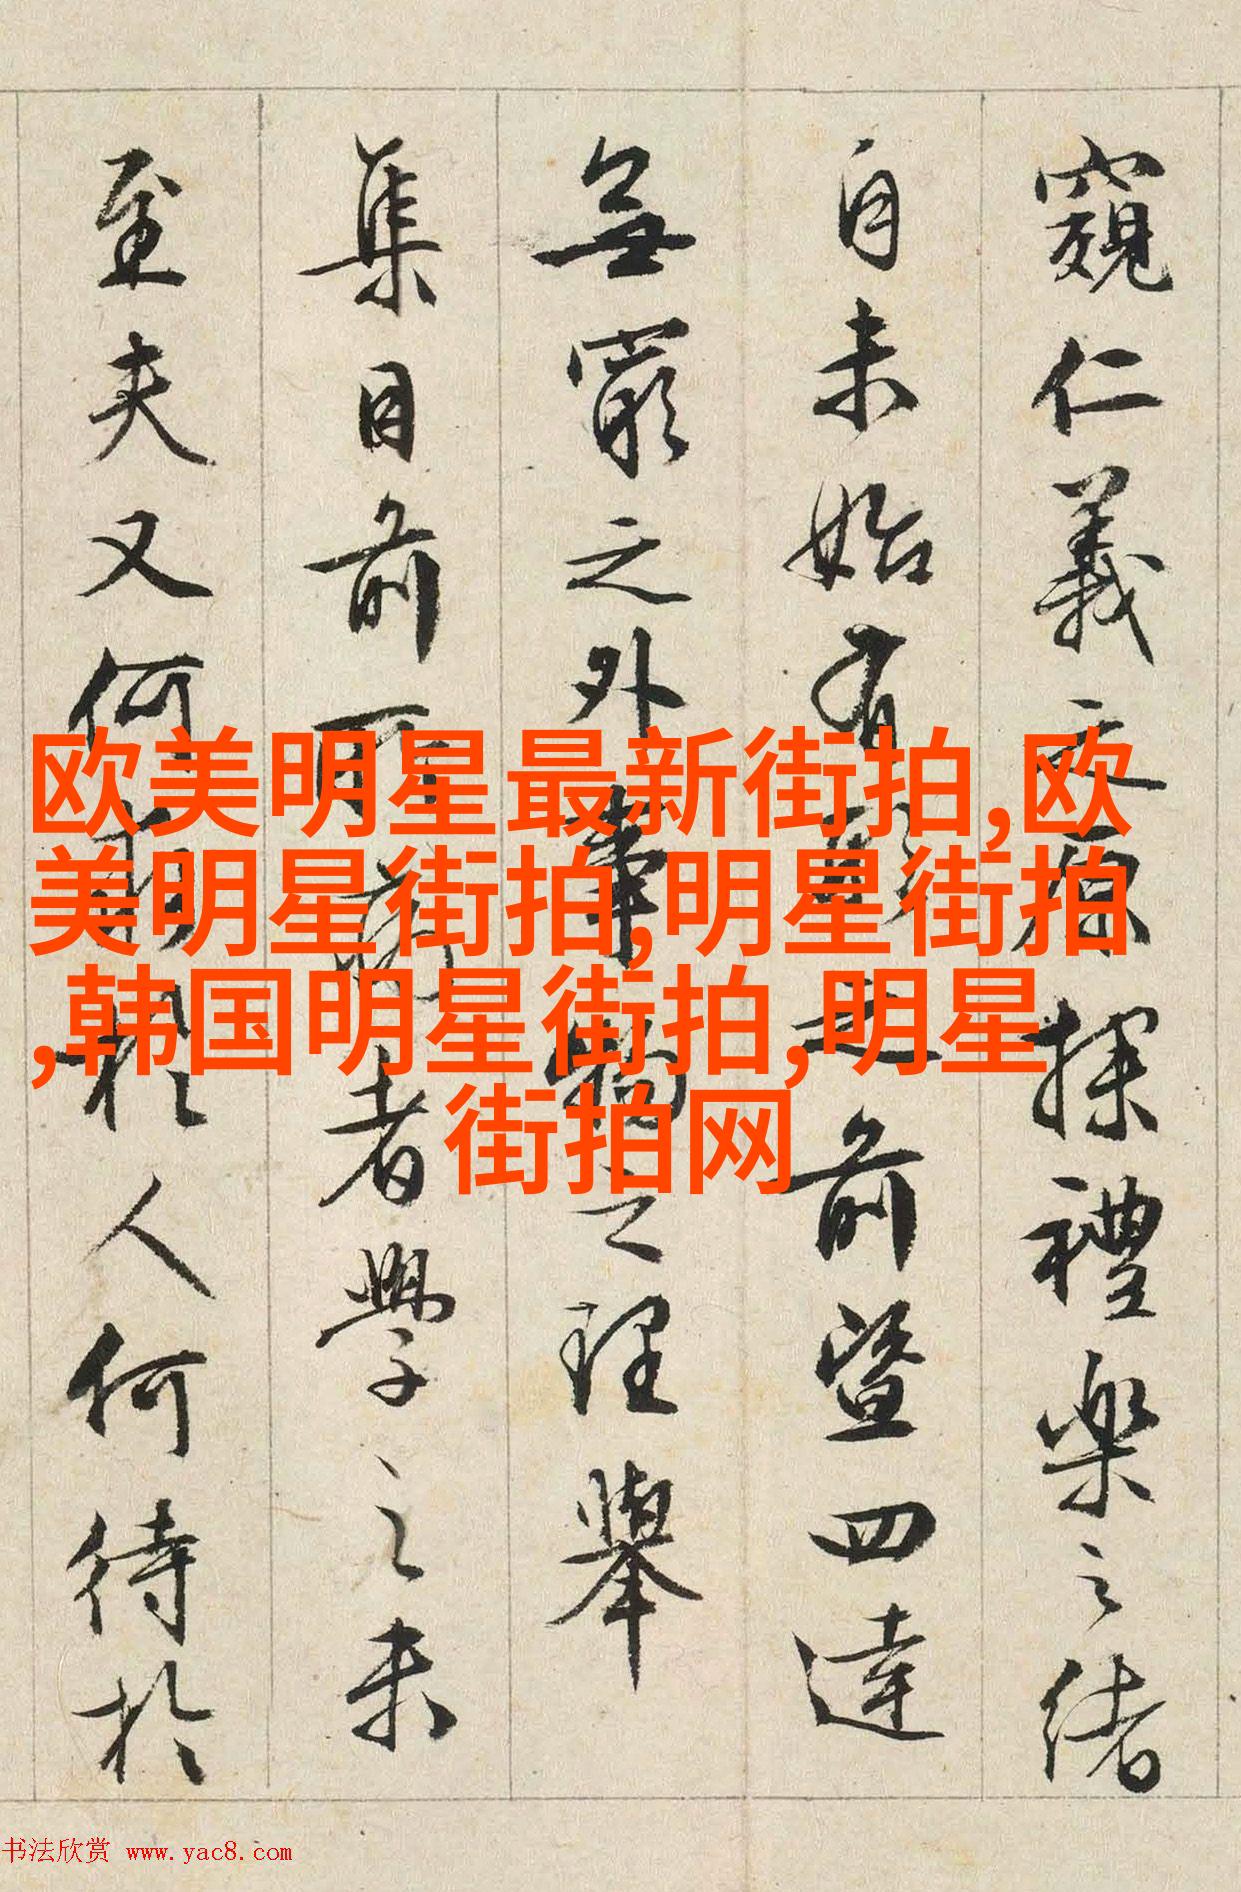 窺仁義之原探禮樂之緒
自未始有前暨四達
無窮之外事物之理舉
集目前所者學之未
至夫又何於人何待於
欧美明星最新街拍,欧
美明星街拍,明星街拍
,韩国明星街拍,明星
街拍网
书法欣赏 www.yac8.com